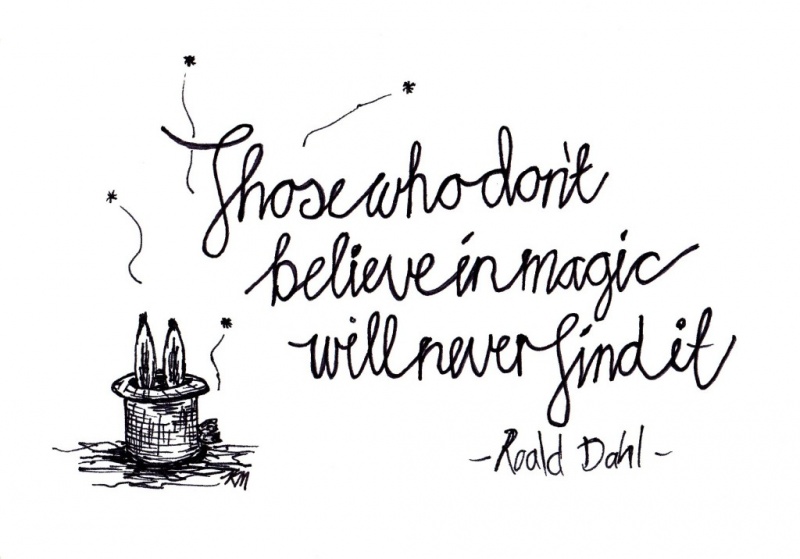 Those who don't
believe in magic
will never find it
- Roald Dahl -
KM